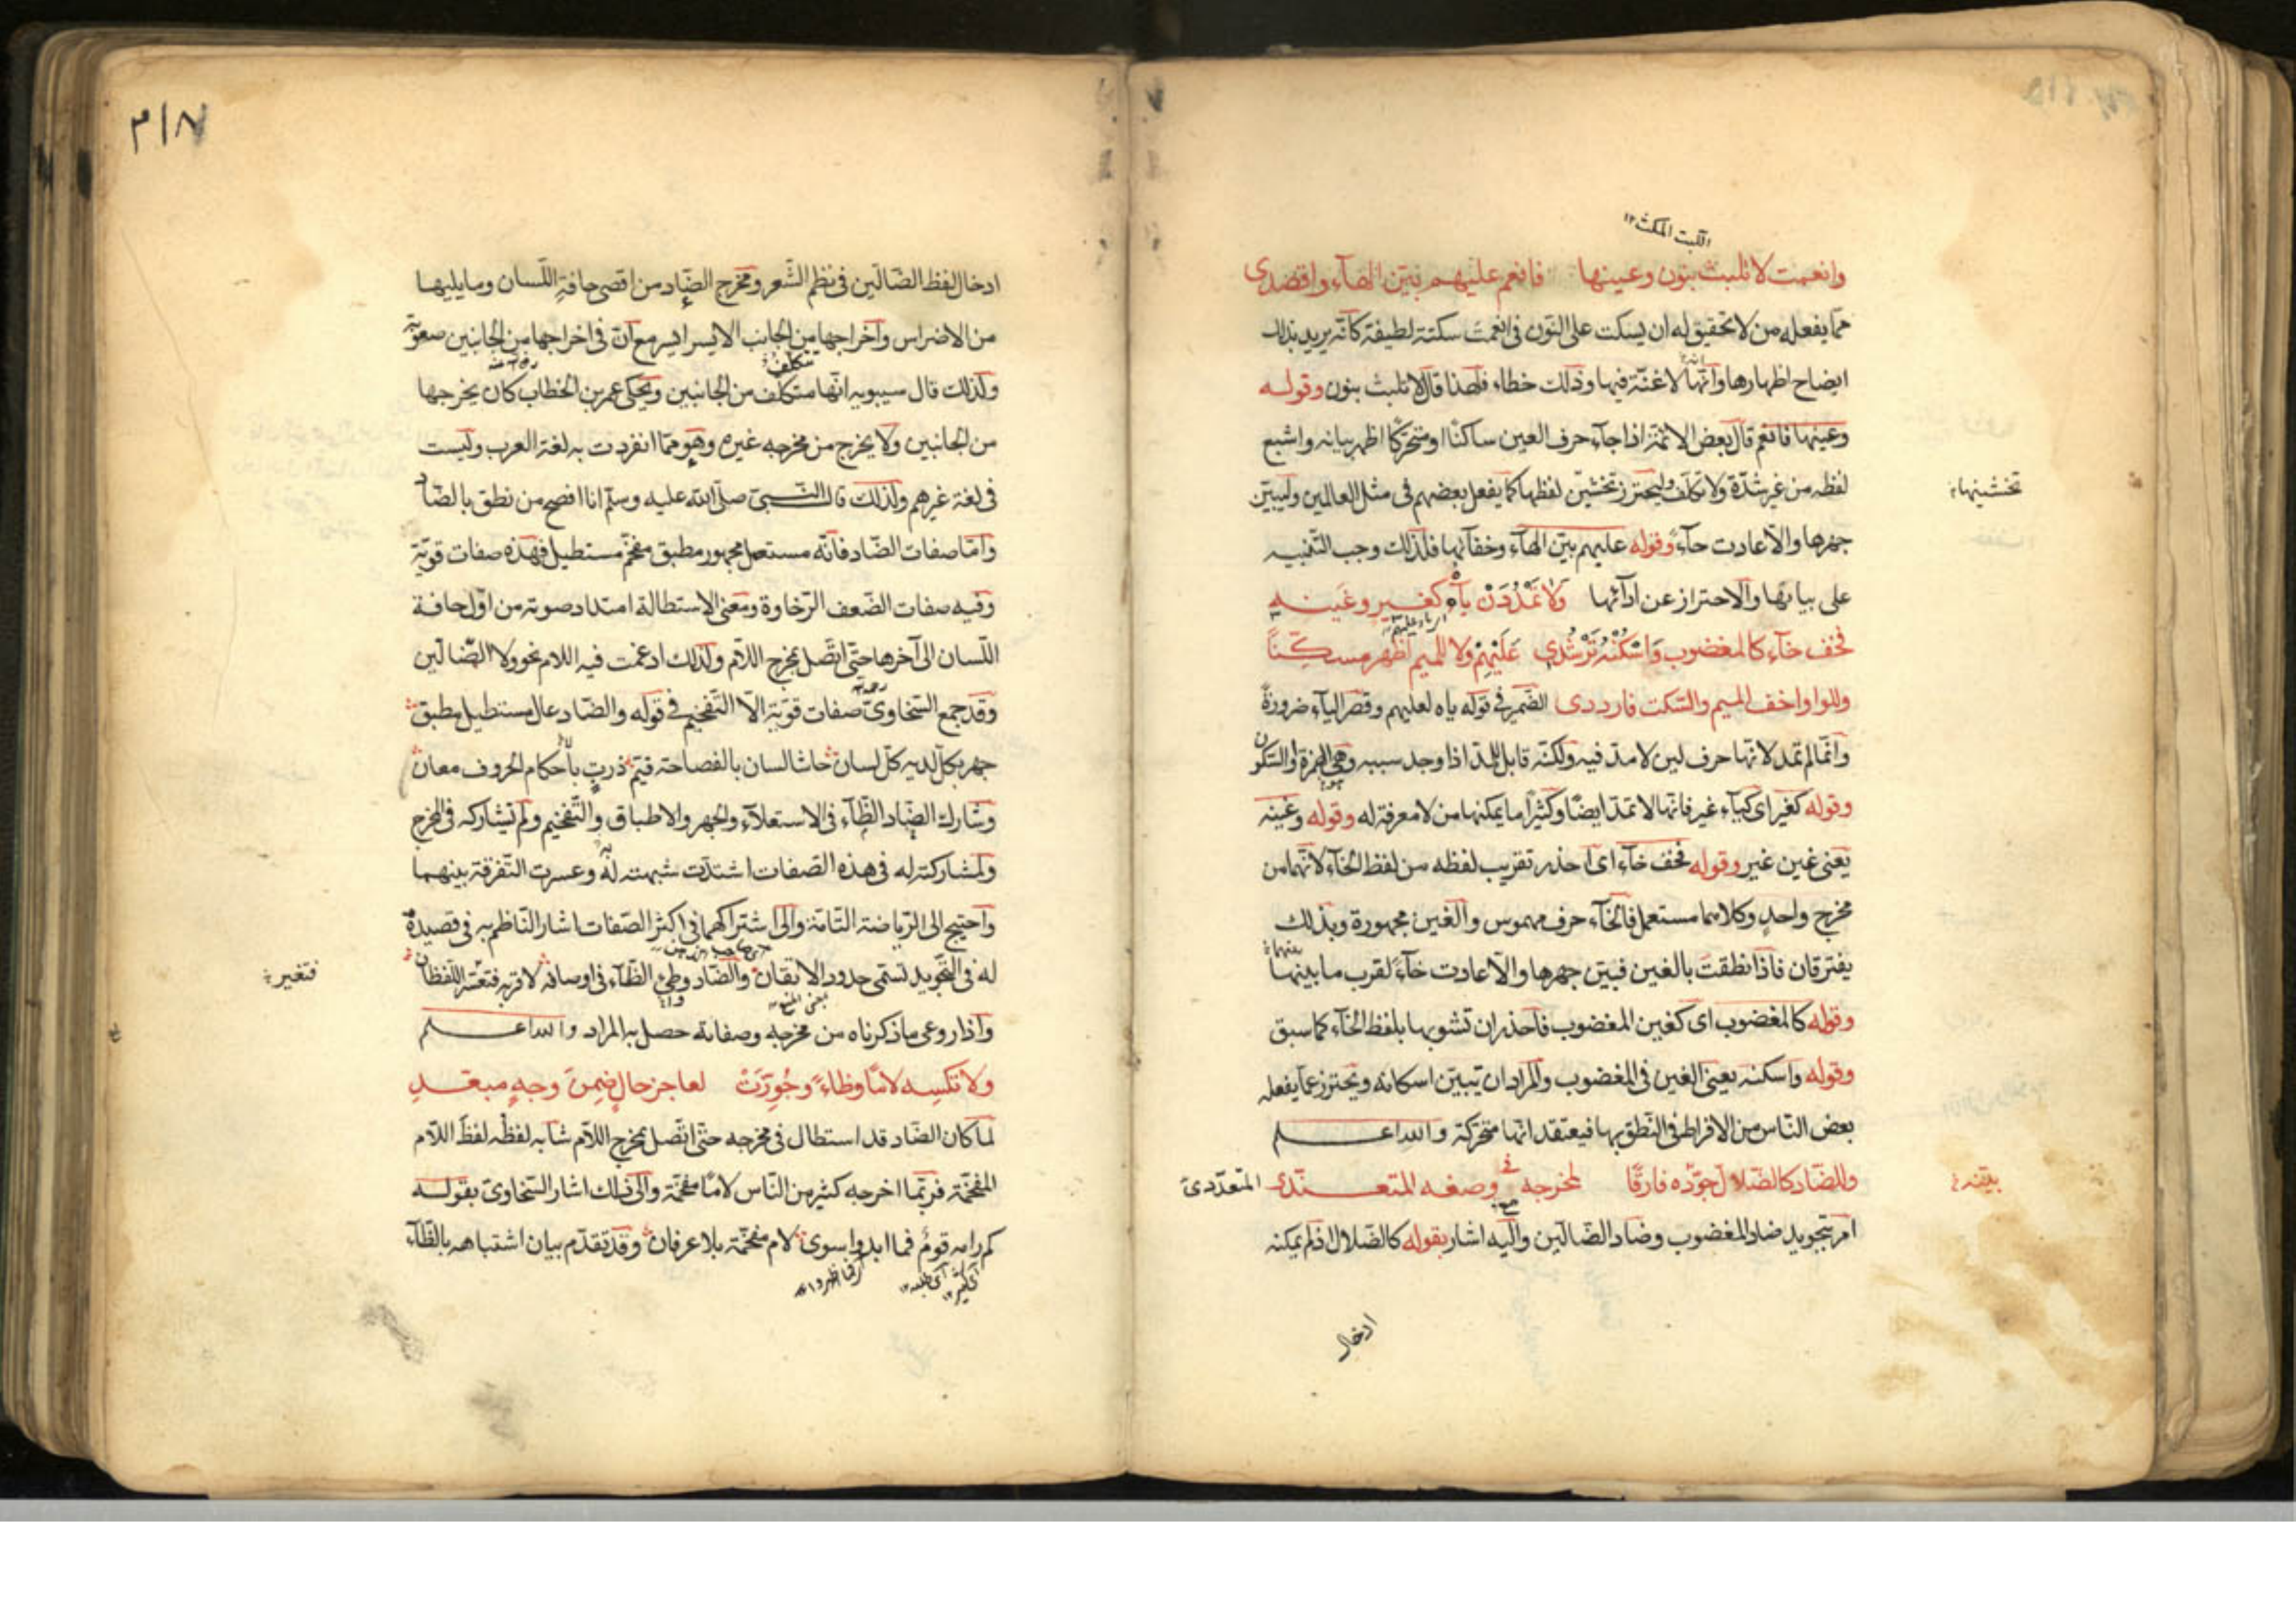 اللبث المكث ١٢
وانعمت لا تلبث بنون وعينها فانعم عليهم بين الهآء واقصدى
مما يفعله من لا تحقيق له ان يسكت على النون فى انعمت سكتة لطيفة كانّه يريد بذلك
ايضاح اظهارها وانّها لا غنّة فيها وذلك خطاء فلهذا قال لا تلبث بنون وقوله
وعينها فانعم قال بعض الائمّة اذا جآء حرف العين ساكنًا او متحرّكًا اظهر بيانه واشبع
لفظه من غير شدّة ولا تكلّف وليحترز تخشين لفظها كما يفعل بعضهم فى مثل العالمين وليبيّن
تخشينها
جهرها والّا عادت حآءً وقوله عليهم بين الهآء وخفآئها فلذلك وجب التّنبيه
على بيانها والاحتراز عن ادآئها وَلا تَمْدُدَنْ يآهُ كغير وغَينهِ
فخف خآء كالمغضوب وَاسْكِنْهُ تَرْشُدِي عَلَيْهِمْ ولا للميم اظهر مسكّنًا
وللواو اخف الميم والسّكت فارددى الضّمير فى قوله ياه لعليهم وقصر اليآء ضرورةً
وانّما لم تمد لانّها حرف لين لا مدّ فيه ولكنّه قابل للمدّ اذا وجد سببه وهى الهمزة او السّكون
وقوله كغير اى كيآء غير فانّها لا تمدّ ايضًا وكثيرًا ما يمكنها من لا معرفة له وقوله وغينه
يعنى غين غير وقوله فخف خآء اى احذر تقريب لفظه من لفظ الخآء لانّهما من
مخرج واحدٍ وكلاهما مستعل فالخآء حرف مهموس والغين مجهورة وبذلك
يفترقان فاذا نطقت بالغين فبيّن جهرها والّا عادت خآءً لقرب ما بينهما
وقوله كالمغضوب اى كغين المغضوب فاحذر ان تشوبها بلفظ الخآء كما سبق
وقوله واسكنه يعنى الغين فى المغضوب والمراد ان تبيّن اسكانه وتحترز عمّا يفعله
بعض النّاس من الافراط فى النّطق بها فيعتقد انّها متحرّكة والله اعلم
والضّاد كالضّلال جوّده فارقًا لمخرجه وصفه المتعدّدى المتعدّدى
امر بتجويد ضاد المغضوب وضاد الضّالّين واليه اشار بقوله كالضّلال اذ لم يمكنه
ادخال
٣١٨
ادخال لفظ الضّالّين فى نظم الشّعر ومخرج الضّاد من اقصى حافة اللّسان وما يليها
من الاضراس واخراجها من الجانب الايسر ايسر مع انّ فى اخراجها من الجانبين صعوبة
ولذلك قال سيبويه انّها متكلّف من الجانبين ويحكى عمر بن الخطاب كان يخرجها
من الجانبين ولا يخرج من مخرجه غيره وهو ممّا انفردت به لغة العرب وليست
فى لغة غيرهم ولذلك قال النّبىّ صلّى الله عليه وسلّم انا افصح من نطق بالضّاد
وامّا صفات الضّاد فانّه مستعل مجهور مطبق مفخّم مستطيل فهذه صفات قويّة
وفيه صفات الضّعف الرّخاوة ومعنى الاستطالة امتداد صوته من اوّل حافة
اللّسان الى آخرها حتّى اتّصل بمخرج اللّام ولذلك ادغمت فيه اللام نحو ولا الضّالّين
وقد جمع السّخاوىّ صفات قويّة الّا التّفخيم فى قوله والضّاد عال مستطيل مطبق
جهر يكلّ لديه كلّ لسان حاشا لسان بالفصاحة قيّم ذربٍ بأحكام الحروف معان
وشارك الضّاد الظّآء فى الاستعلآء والجهر والاطباق والتّفخيم ولم تشاركه فى المخرج
ولمشاركته له فى هذه الصّفات اشتدّت شبهته له وعسرت التّفرقة بينهما
واحتيج الى الرّياضة التّامّة والى اشتراكهما فى اكثر الصّفات اشار النّاظم به فى قصيدة
له فى التّجويد تسمّى حدود الاتقان والضّاد وطى الظّآء فى اوصافه لا قربه فتعسّر اللّفظان
فتغير
واذا روعى ما ذكرناه من مخرجه وصفاته حصل به المراد والله اعلم
ولا تكسِه لامًا وظاءً وجُوِّزَتْ لعاجز حالٍ ضِمنَ وجهٍ مبعّدِ
لما كان الضّاد قد استطال فى مخرجه حتّى اتّصل بمخرج اللّام شابه لفظُه لفظَ اللّام
المفخّمة فربّما اخرجه كثير من النّاس لامًا مفخّمة والى ذلك اشار السّخاوىّ بقوله
كم رامه قومٌ فما ابدوا سوى لام مفخّمة بلا عرفان وقد تقدّم بيان اشتباهه بالظّآء